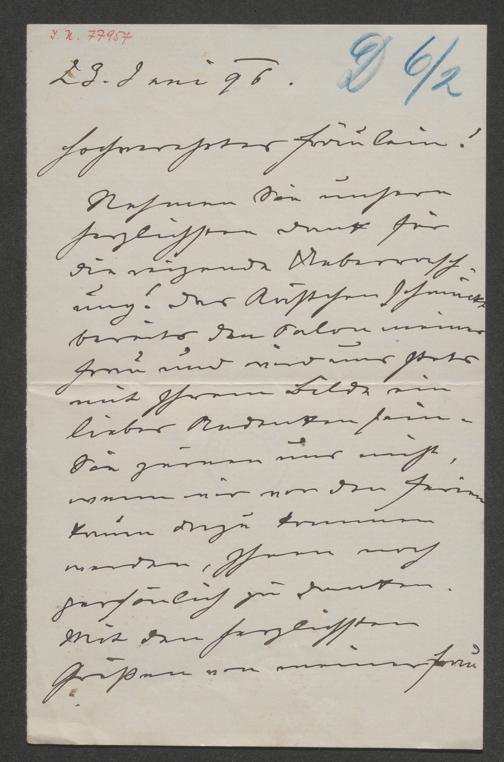 I. N. 77957
D 6/2
23. Juni 96.
Hochverehrtes Fräulein!
Nehmen Sie unsern
herzlichsten Dank für
die reizende Ueberrasch-
ung! Das Kästchen schmückt
bereits den Salon meiner
Frau und wird uns stets
mit Ihrem Bilde ein
liebes Andenken sein.
Sie zürnen uns nicht,
wenn wir vor den Ferien
kaum dazu kommen
werden, Ihnen noch
persönlich zu danken.
Mit den herzlichsten
Grüßen von meiner Frau